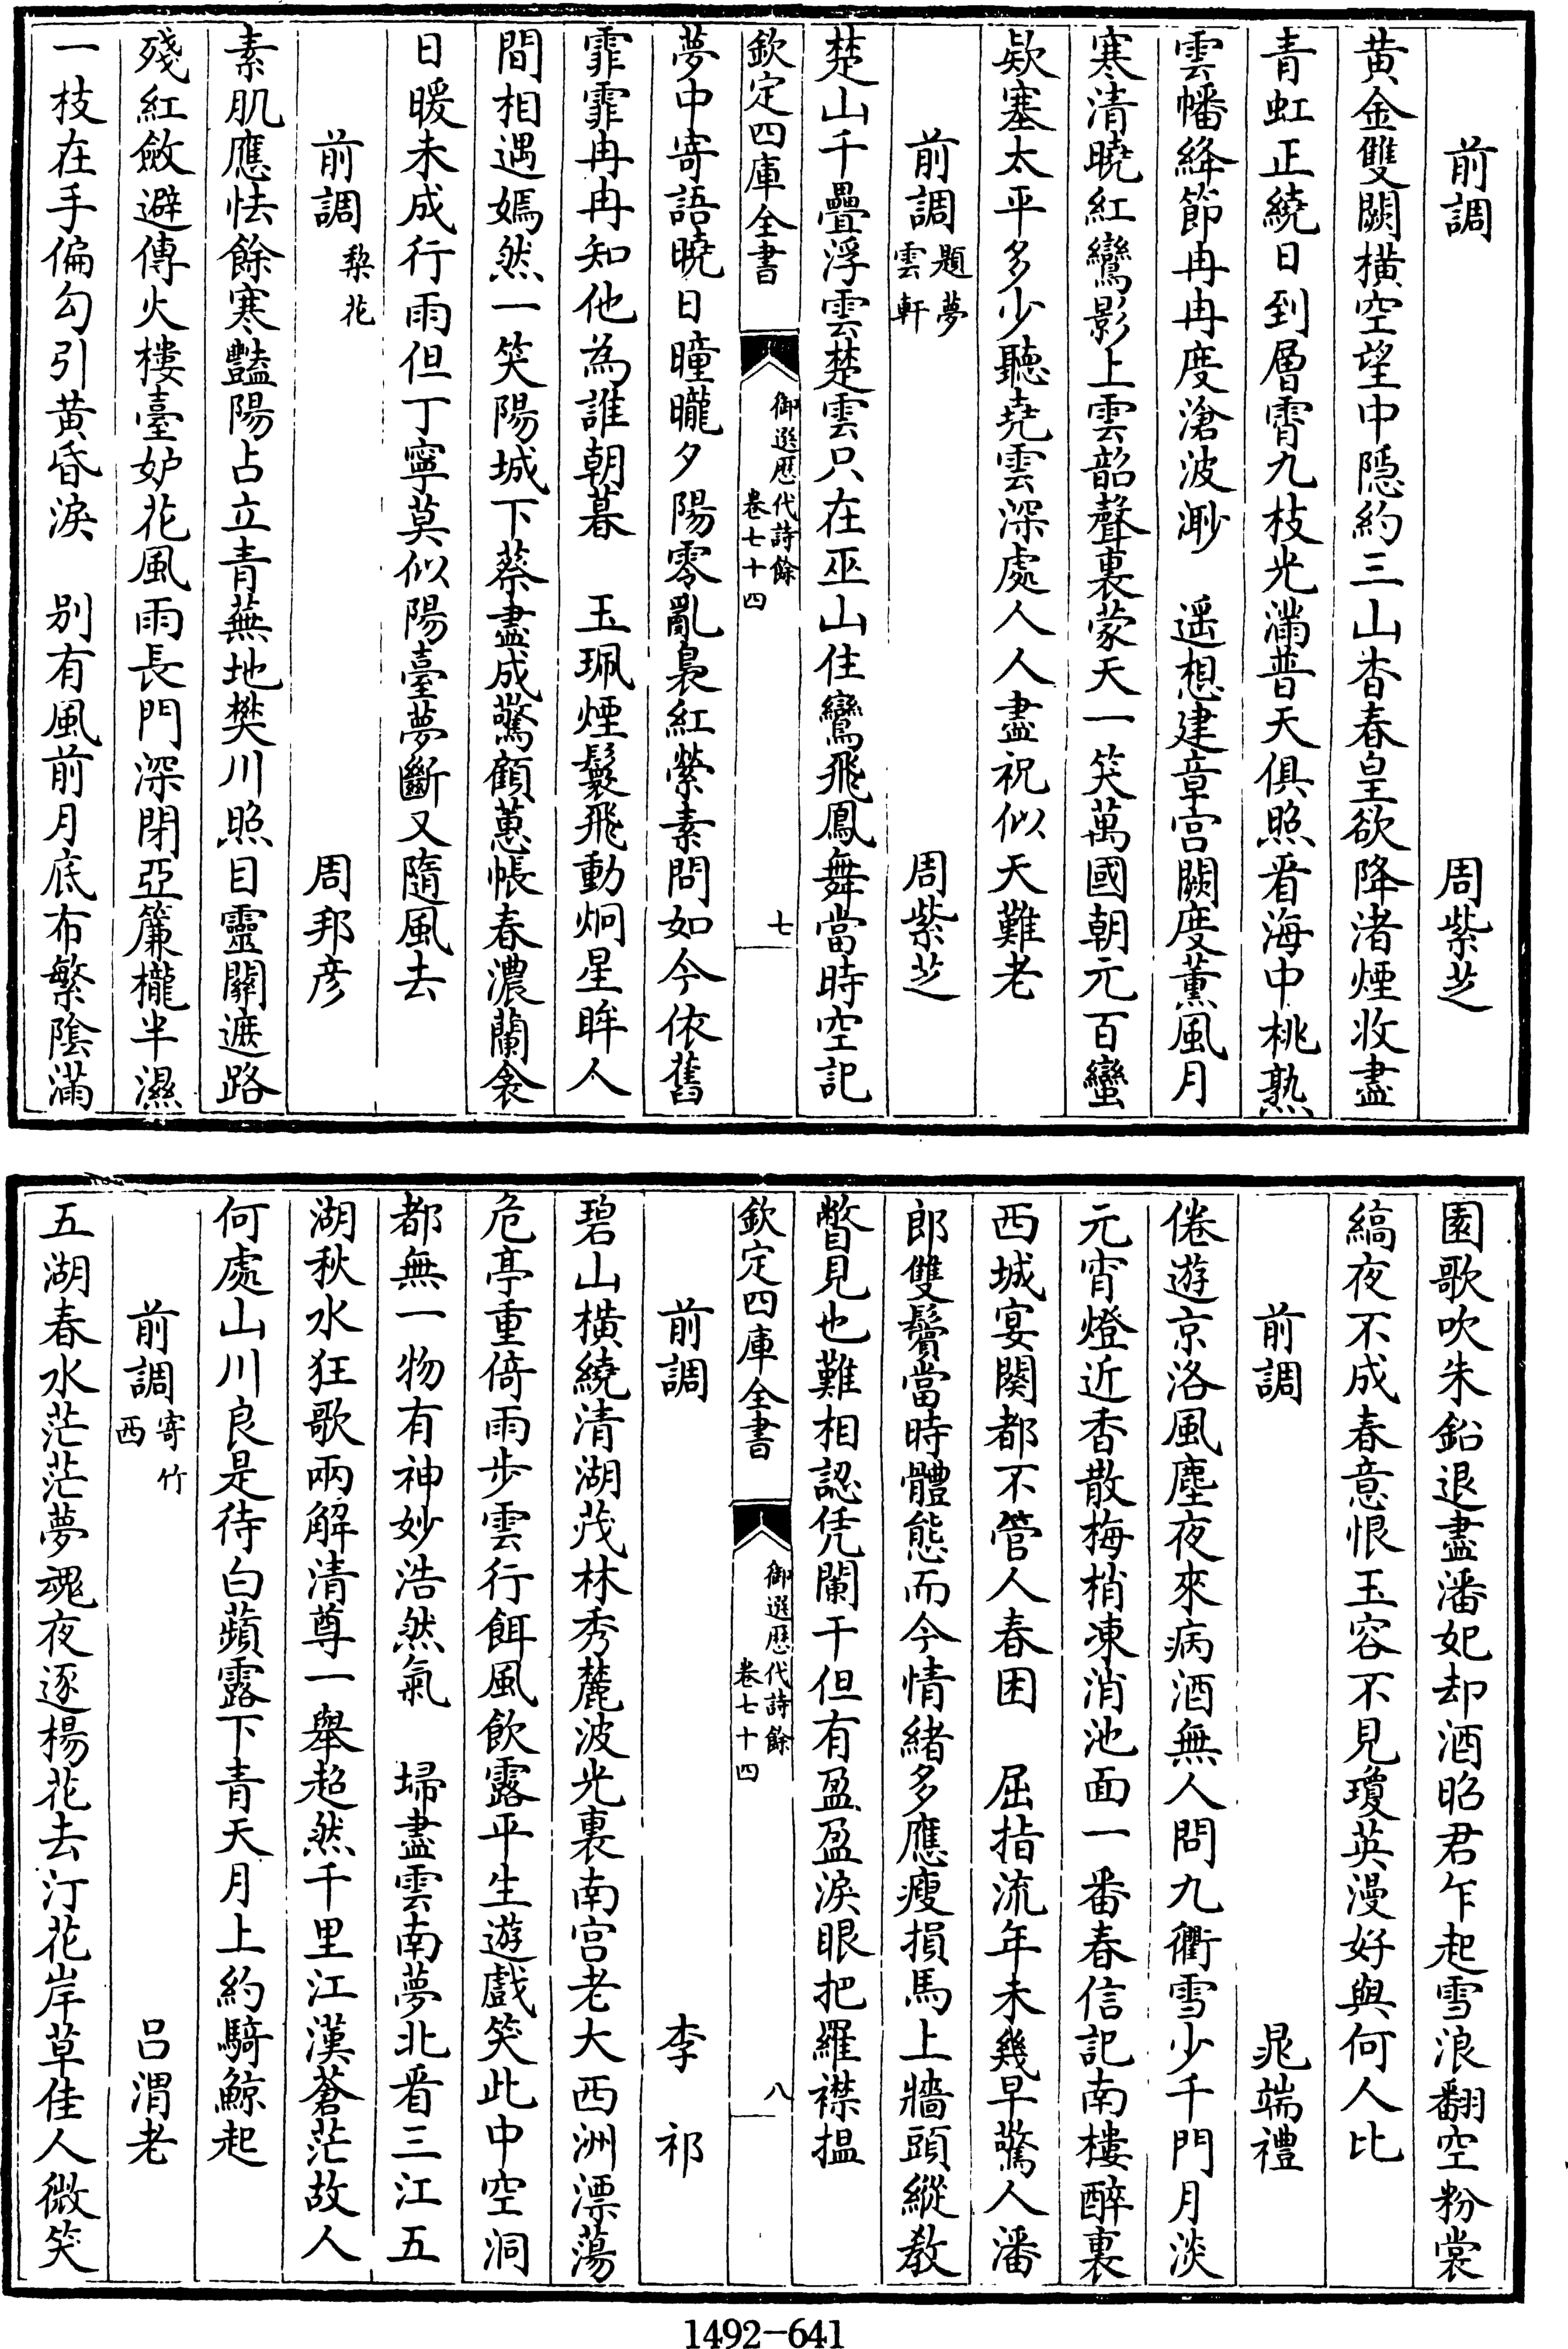 前調　周紫芝
黄金雙闕横空望中隠約三山杳春皇欲降渚煙收盡
青虹正繞日到層霄九枝光滿普天俱照看海中桃熟
雲幡絳節冉冉度滄波渺　遥想建章宫闕度薫風月
寒清曉紅鸞影上雲韶聲裏蒙天一笑萬國朝元百蠻
欵塞太平多少聽堯雲深處人人盡祝似天難老
前調題夢雲軒　周紫芝
楚山千疊浮雲楚雲只在巫山住鸞飛鳳舞當時空記
欽定四庫全書　御選歴代詩餘卷七十四　七
夢中寄語曉日曈曨夕陽零亂裊紅縈素問如今依舊
霏霏冉冉知他為誰朝暮　玉珮煙鬟飛動炯星眸人
間相遇嫣然一笑陽城下蔡盡成驚顧蕙帳春濃蘭衾
日暖未成行雨但丁寧莫似陽臺夢斷又隨風去
前調棃花　周邦彦
素肌應怯餘寒豔陽占立青蕪地樊川照目靈關遮路
殘紅斂避傳火樓臺妒花風雨長門深閉亞簾櫳半濕
一枝在手偏勾引黄昏淚　别有風前月底布繁陰滿
園歌吹朱鉛退盡潘妃却酒昭君乍起雪浪翻空粉裳
縞夜不成春意恨玉容不見瓊英漫好與何人比
前調　晁端禮
倦遊京洛風塵夜來病酒無人問九衢雪少千門月淡
元宵燈近香散梅梢凍消池面一番春信記南樓醉裏
西城宴闋都不管人春困　屈指流年未幾早驚人潘
郎雙鬢當時體態而今情緒多應瘦損馬上牆頭縱教
瞥見也難相認凭闌干但有盈盈淚眼把羅襟揾
欽定四庫全書　御選歴代詩餘卷七十四　八
前調　李祁
碧山横繞清湖茂林秀麓波光裏南宫老大西洲漂蕩
危亭重倚雨步雲行餌風飲露平生遊戲笑此中空洞
都無一物有神妙浩然氣　埽盡雲南夢北看三江五
湖秋水狂歌兩解清尊一舉超然千里江漢蒼茫故人
何處山川良是待白蘋露下青天月上約騎鯨起
前調寄竹西　吕渭老
五湖春水茫茫夢魂夜逐楊花去汀花岸草佳人微笑
1492-641